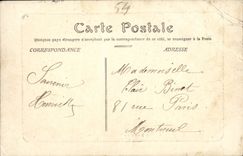 Carte Postale
Quelques pays étrangers n'acceptent pas la correspondance de ce côté, se renseigner à la Poste
CORRESPONDANCE
ADRESSE
Souvenir
Mademoiselle
Binet
81 rue Paris
Montreuil